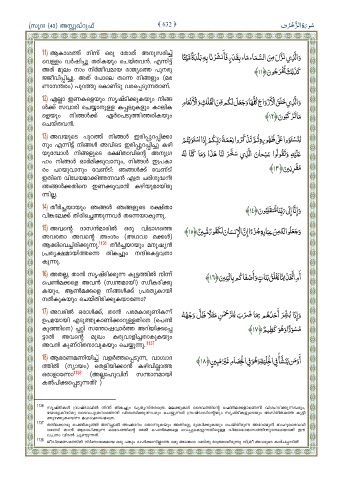 (സൂറഃ (43) അസ്സുഖ്റുഫ് 632 سُورَةُ الزُّخْرُف
11) ആകാശത്ത് നിന്ന് ഒരു തോത് അനുസരിച്ച്
വെള്ളം വർഷിച്ചു തരികയും ചെയ്തവൻ. എന്നിട്ട്
അത് മൂലം നാം നിർജീവമായ രാജ്യത്തെ പുനരു
ജ്ജീവിപ്പിച്ചു. അത് പോലെ തന്നെ നിങ്ങളും (മര
ണാനന്തരം) പുറത്തു കൊണ്ടു വരപ്പെടുന്നതാണ്.
وَالَّذِي نَزَّلَ مِنَ السَّمَاءِ مَاءً بِقَدَرٍ فَأَنشَرْنَا بِهِ بَلْدَةً مَّيْتًا
كَذَٰلِكَ تُخْرَجُونَ ﴿١١﴾
12) എല്ലാ ഇണകളെയും സൃഷ്ടിക്കുകയും നിങ്ങ
ൾക്ക് സവാരി ചെയ്യാനുള്ള കപ്പലുകളും കാലിക
ളെയും നിങ്ങൾക്ക് ഏർപെടുത്തിത്തരികയും
ചെയ്തവൻ.
وَالَّذِي خَلَقَ الْأَزْوَاجَ كُلَّهَا وَجَعَلَ لَكُم مِّنَ الْفُلْكِ وَالْأَنْعَامِ
مَا تَرْكَبُونَ ﴿١٢﴾
13) അവയുടെ പുറത്ത് നിങ്ങൾ ഇരിപ്പുറപ്പിക്കാ
നും എന്നിട്ട് നിങ്ങൾ അവിടെ ഇരിപ്പുറപ്പിച്ചു കഴി
യുമ്പോൾ നിങ്ങളുടെ രക്ഷിതാവിന്റെ അനുഗ്ര
ഹം നിങ്ങൾ ഓർമിക്കുവാനും, നിങ്ങൾ ഇപ്രകാ
രം പറയുവാനും വേണ്ടി: ഞങ്ങൾക്ക് വേണ്ടി
ഇതിനെ വിധേയമാക്കിത്തന്നവൻ എത്ര പരിശുദ്ധൻ!
ഞങ്ങൾക്കതിനെ ഇണക്കുവാൻ കഴിയുമായിരു
ന്നില്ല.
لِتَسْتَوُوا عَلَىٰ ظُهُورِهِ ثُمَّ تَذْكُرُوا نِعْمَةَ رَبِّكُمْ إِذَا اسْتَوَيْتُمْ
عَلَيْهِ وَتَقُولُوا سُبْحَانَ الَّذِي سَخَّرَ لَنَا هَٰذَا وَمَا كُنَّا لَهُ
مُقْرِنِينَ ﴿١٣﴾
14) തീർച്ചയായും ഞങ്ങൾ ഞങ്ങളുടെ രക്ഷിതാ
വിങ്കലേക്ക് തിരിച്ചെത്തുന്നവർ തന്നെയാകുന്നു.
وَإِنَّا إِلَىٰ رَبِّنَا لَمُنقَلِبُونَ ﴿١٤﴾
15) അവന്റെ ദാസന്മാരിൽ ഒരു വിഭാഗത്തെ
അവരതാ അവന്റെ അംശം (അഥവാ മക്കൾ)
ആക്കിവെച്ചിരിക്കുന്നു. തീർച്ചയായും മനുഷ്യൻ
പ്രത്യക്ഷമായിത്തന്നെ തികച്ചും നന്ദികെട്ടവനാ
കുന്നു.
وَجَعَلُوا لَهُ مِنْ عِبَادِهِ جُزْءًا إِنَّ الْإِنسَانَ لَكَفُورٌ مُّبِينٌ ﴿١٥﴾
16) അതല്ല, താൻ സൃഷ്ടിക്കുന്ന കൂട്ടത്തിൽ നിന്ന്
പെൺമക്കളെ അവൻ (സ്വന്തമായി) സ്വീകരിക്കു
കയും, ആൺമക്കളെ നിങ്ങൾക്ക് പ്രത്യേകമായി
നൽകുകയും ചെയ്തിരിക്കുകയാണോ?
أَمِ اتَّخَذَ مِمَّا يَخْلُقُ بَنَاتٍ وَأَصْفَاكُم بِالْبَنِينَ ﴿١٦﴾
17) അവരിൽ ഒരാൾക്ക്, താൻ പരമകാരുണികന്ന്
ഉപമയായി എടുത്തുകാണിക്കാറുള്ളതിനെ (പെൺ
കുഞ്ഞിനെ) പ്പറ്റി സന്തോഷവാർത്ത അറിയിക്കപ്പെ
ട്ടാൽ അവന്റെ മുഖം കരുവാളിച്ചതാകുകയും
അവൻ കുണ്ഠിതനാവുകയും ചെയ്യുന്നു.
وَإِذَا بُشِّرَ أَحَدُهُم بِمَا ضَرَبَ لِلرَّحْمَٰنِ مَثَلًا ظَلَّ وَجْهُهُ
مُسْوَدًّا وَهُوَ كَظِيمٌ ﴿١٧﴾
18) ആഭരണമണിയിച്ച് വളർത്തപ്പെടുന്ന, വാഗ്വാദ
ത്തിൽ (ന്യായം) തെളിയിക്കാൻ കഴിവില്ലാത്ത
ഒരാളാണോ (അല്ലാഹുവിന് സന്താനമായി
കൽപിക്കപ്പെടുന്നത്? )
أَوَمَن يُنَشَّأُ فِي الْحِلْيَةِ وَهُوَ فِي الْخِصَامِ غَيْرُ مُبِينٍ ﴿١٨﴾